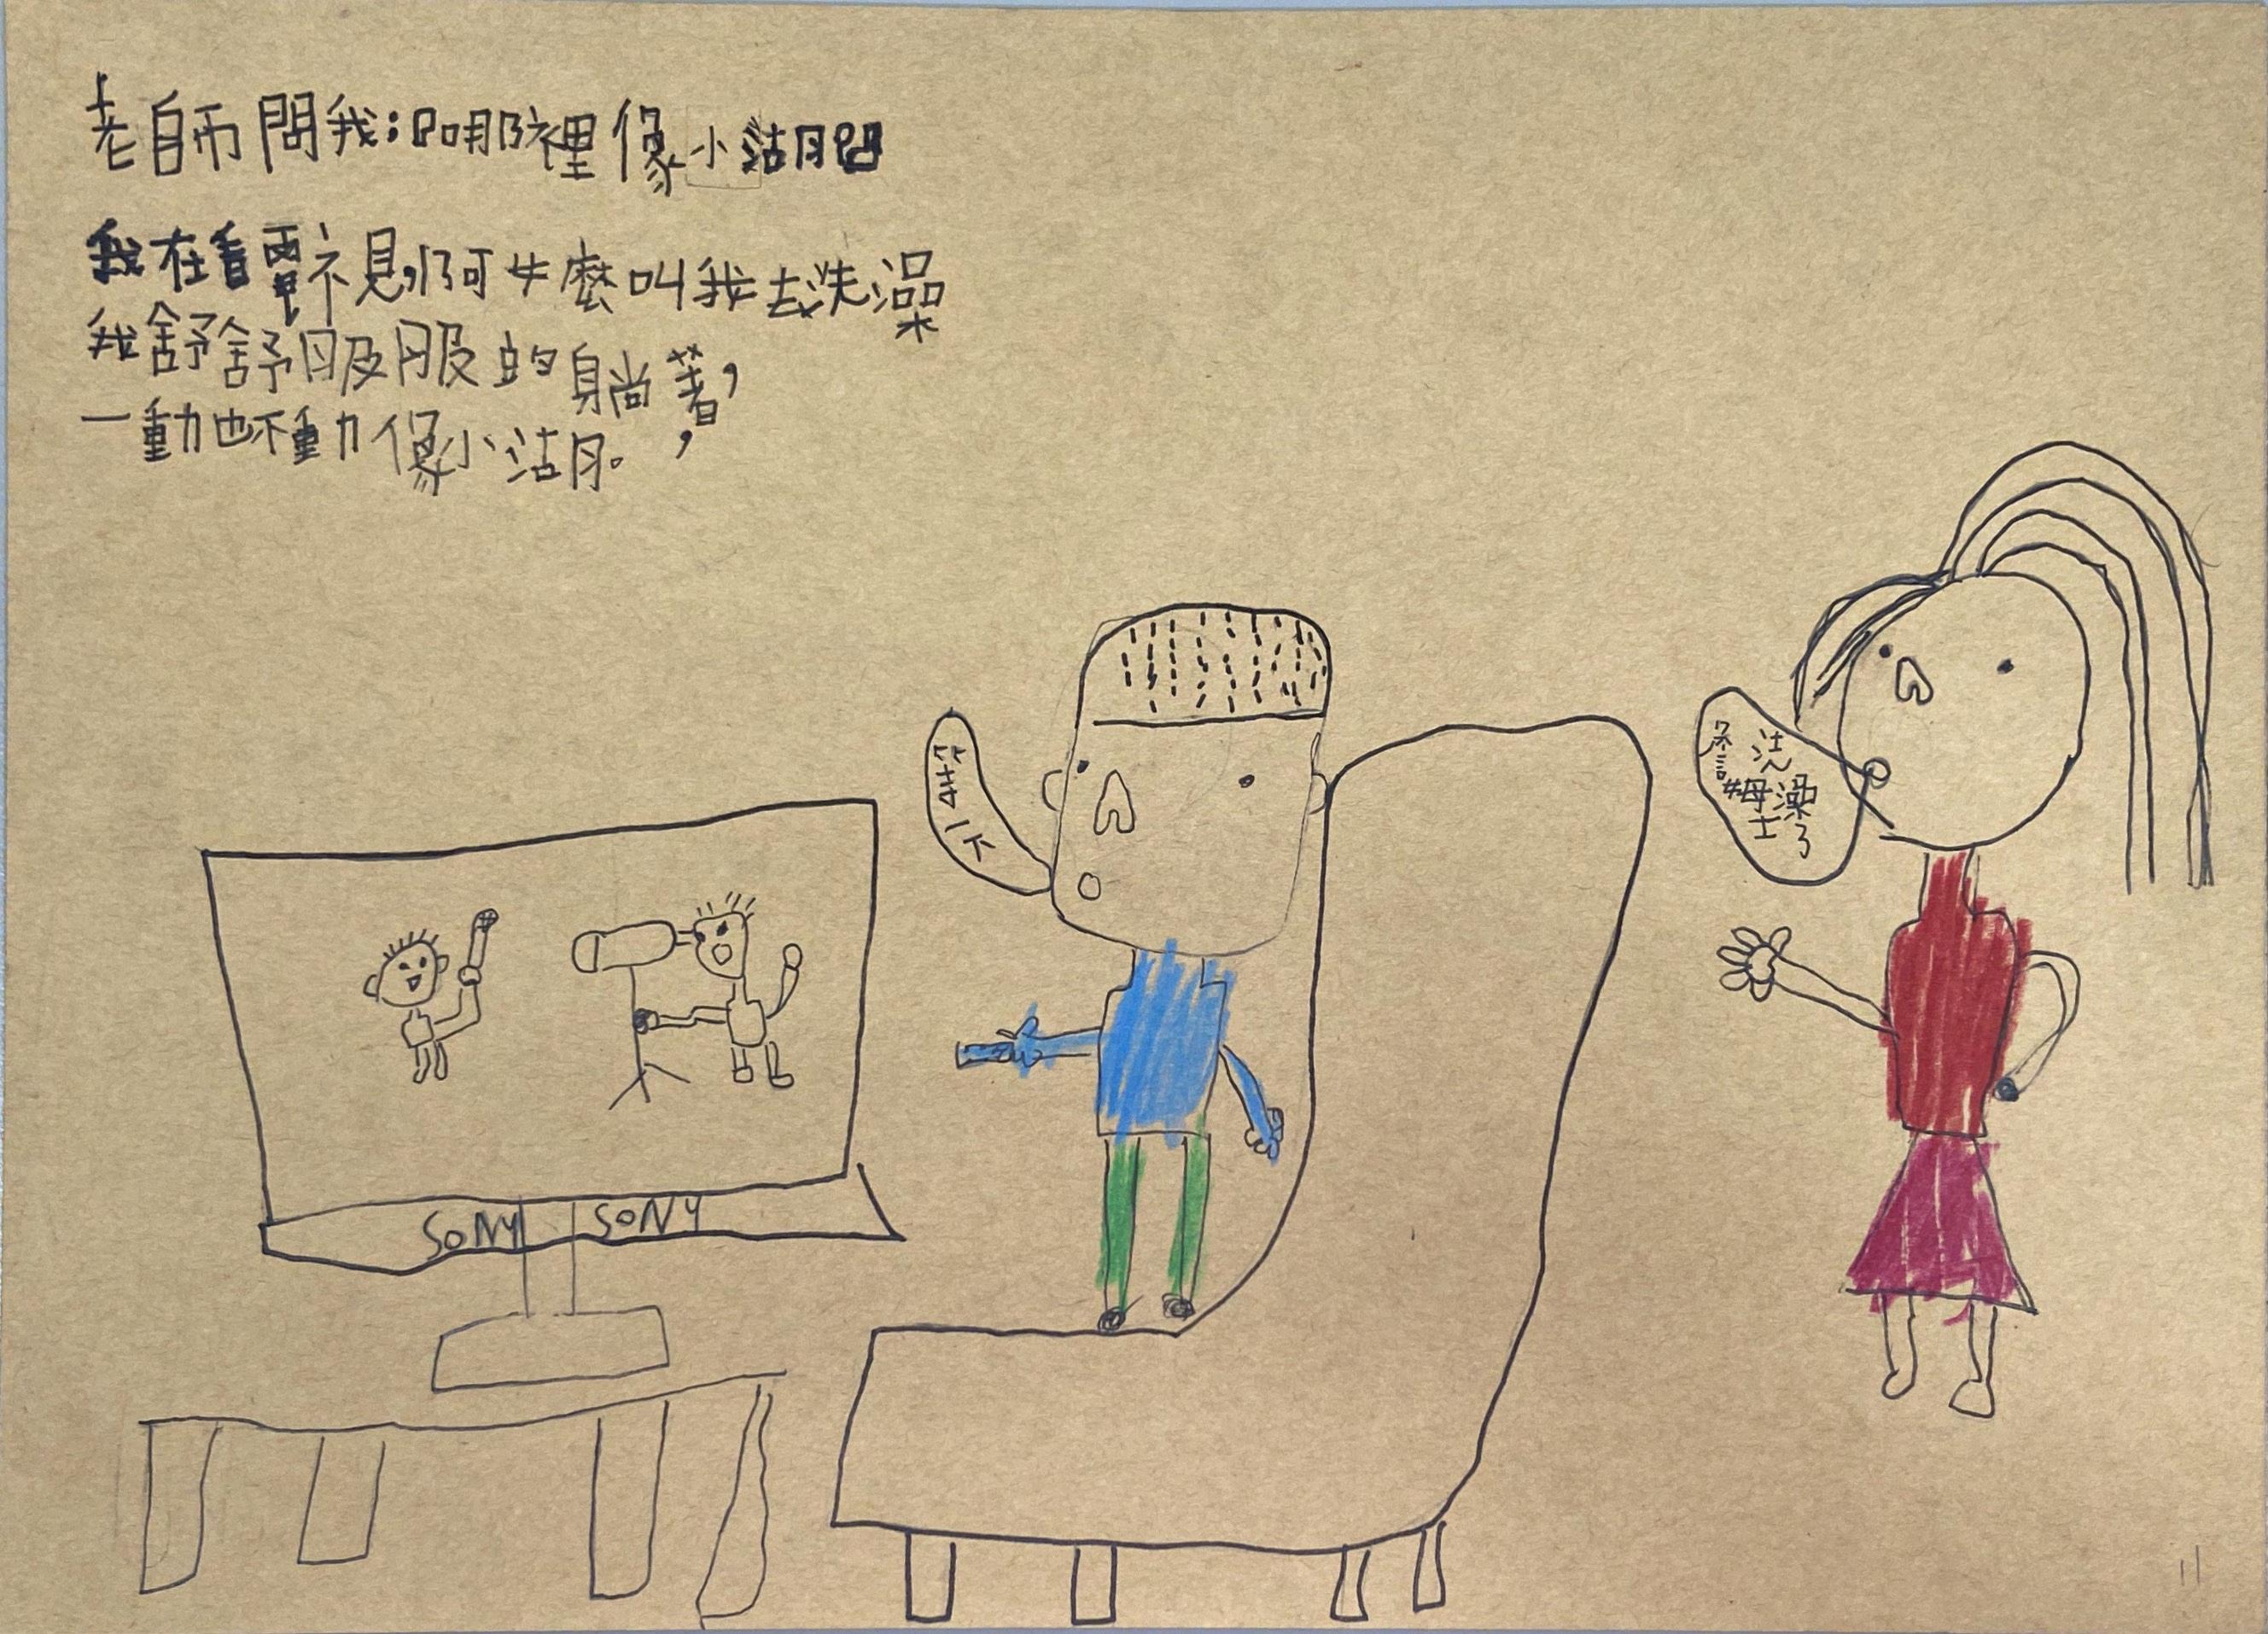 老師問我：哪裡像小沽月
我在看電視,阿姨叫我去洗澡
我舒舒服服的躺著，
一動也不動像小沽月。
等一下
洗澡了
SONY SONY
11